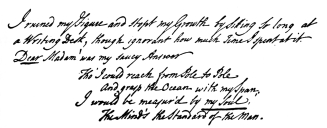 I ruined my Figure and stopt my Growth by Sitting So long at
a Writing Desk, though ignorant how much Time I spent at it
Dear Madam was my saucy Answer
Tho' I could reach from Pole to Pole
and grasp the Ocean with my Span,
I would be measur'd by my Soul.
The Mind's the Standard of the Man.